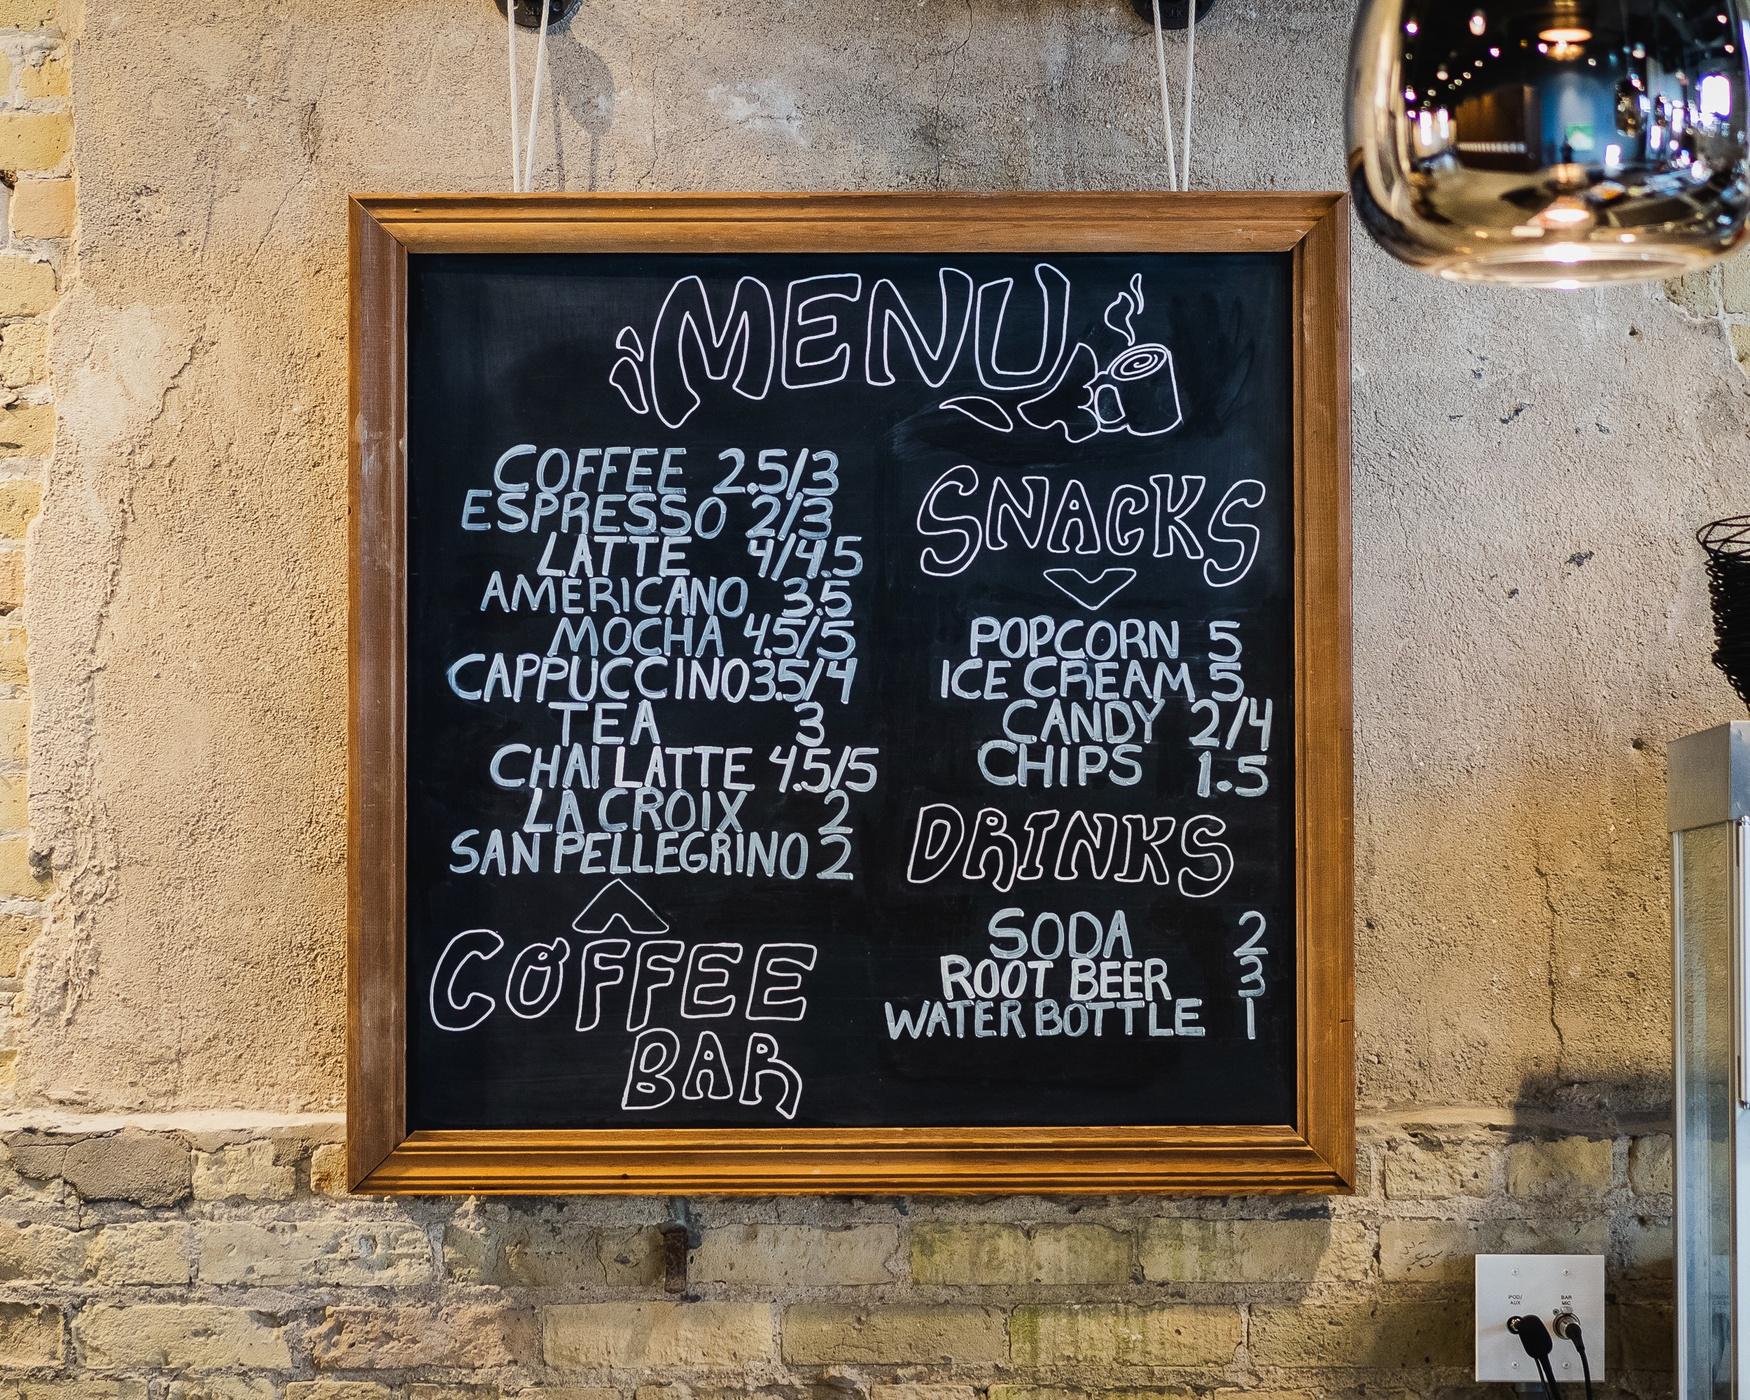 MENU
COFFEE 2.5/3
ESPRESSO 2/3
LATTE 4/4.5
AMERICANO 3.5
MOCHA 4.5/5
CAPPUCCINO 3.5/4
TEA 3
CHAI LATTE 4.5/5
LA CROIX 2
SAN PELLEGRINO 2
COFFEE
BAR
SNACKS
POPCORN 5
ICE CREAM 5
CANDY 2/4
CHIPS 1.5
DRINKS
SODA 2
ROOT BEER 3
WATER BOTTLE 1
IPOD/
AUX
BAR
MIC